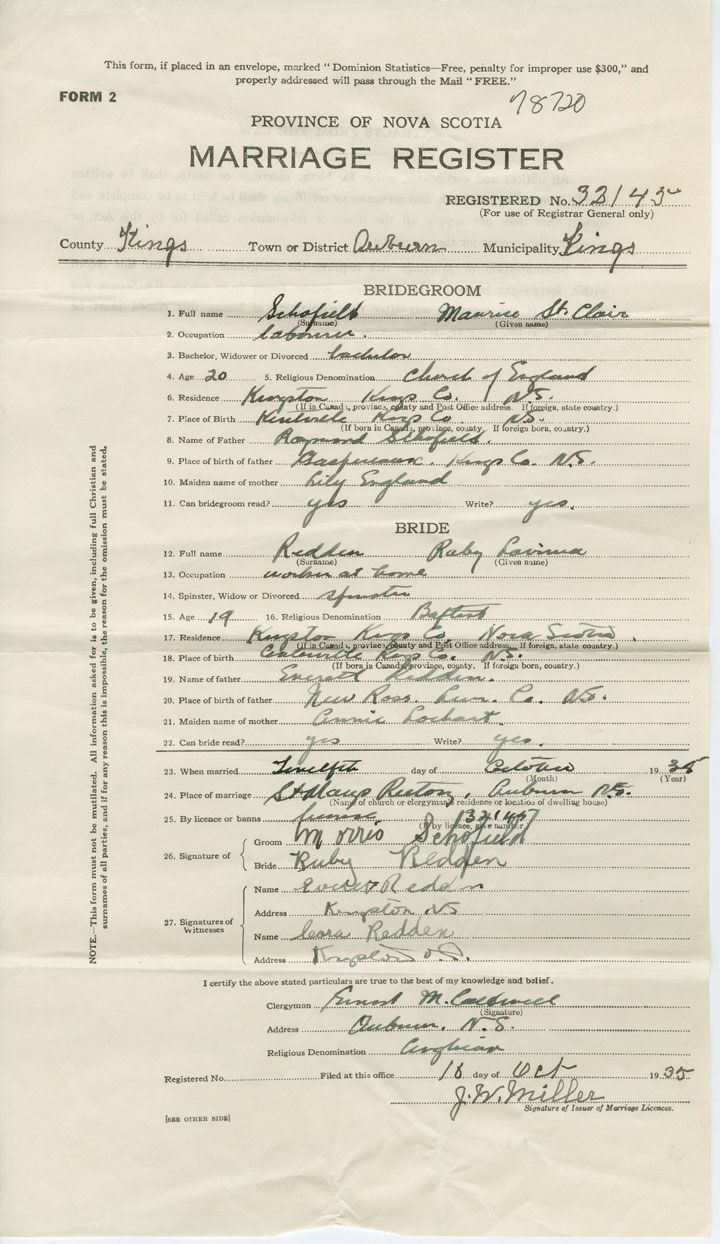 This form, if placed in an envelope, marked "Dominion Statistics—Free, penalty for improper use $300," and
properly addressed will pass through the Mail "FREE."
FORM 2
78720
PROVINCE OF NOVA SCOTIA
MARRIAGE REGISTER
REGISTERED No. 32145
(For use of Registrar General only)
County Kings Town or District Auburn Municipality Kings
BRIDEGROOM
1. Full name Schofield Maurice St. Clair
(Surname) (Given name)
2. Occupation labourer.
3. Bachelor, Widower or Divorced bachelor
4. Age 20 5. Religious Denomination Church of England
6. Residence Kingston Kings Co. N.S.
(If in Canada, province, county and Post Office address. If foreign, state country.)
7. Place of Birth Kentville Kings Co N.S.
(If born in Canada, province, county. If foreign born, country.)
8. Name of Father Raymond Schofield.
9. Place of birth of father Gaspereaux. Kings Co. N.S.
10. Maiden name of mother Lily England
11. Can bridegroom read? yes Write? yes.
BRIDE
12. Full name Redden Ruby Lavinia
(Surname) (Given name)
13. Occupation worker at home
14. Spinster, Widow or Divorced spinster
15. Age 19 16. Religious Denomination Baptist
17. Residence Kingston Kings Co. Nova Scotia.
(If in Canada, province, county and Post Office address. If foreign, state country.)
18. Place of birth Kings Co. N.S.
(If born in Canada, province, county. If foreign born, country.)
19. Name of father Everett Redden.
20. Place of birth of father New Ross. Lun. Co. N.S.
21. Maiden name of mother Annie Lockart.
22. Can bride read? yes Write? yes.
23. When married Twelfth day of October 1935
(Month) (Year)
24. Place of marriage St Marys Rectory, Auburn N.S.
(Name of church or clergyman's residence or location of dwelling house)
25. By licence or banns license
(If by licence, give number)
26. Signature of
Groom Morris Schofield
Bride Ruby Redden
27. Signatures of Witnesses
Name Redden
Address Kingston NS
Name Cora Redden
Address Kingston
I certify the above stated particulars are true to the best of my knowledge and belief.
Clergyman Ernest M. Caldwell
(Signature)
Address Auburn, N.S.
Religious Denomination Anglican
Registered No. Filed at this office 18 day of Oct 1935
J. W. Miller
Signature of Issuer of Marriage Licences.
[SEE OTHER SIDE]
NOTE.—This form must not be mutilated. All information asked for is to be given, including full Christian and
surnames of all parties, and if for any reason this is impossible, the reason for the omission must be stated.